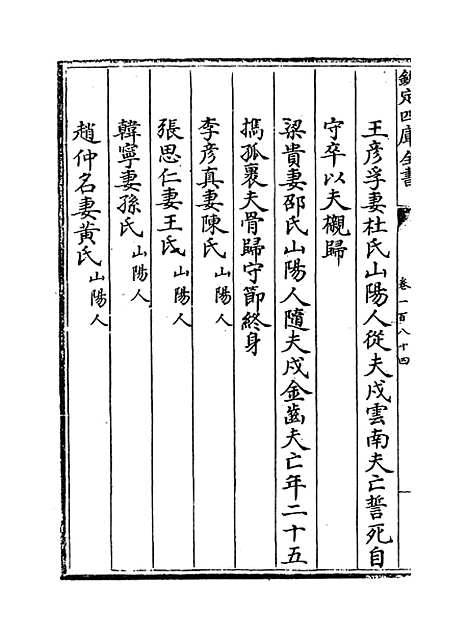 欽定四庫全書
卷一百八十四
王彦孚妻杜氏山陽人從夫戍雲南夫亡誓死自
守卒以夫櫬歸
梁貴妻邵氏山陽人隨夫戍金齒夫亡年二十五
攜孤裹夫骨歸守節終身
李彦真妻陳氏山陽人
張思仁妻王氏山陽人
韓寧妻孫氏山陽人
趙仲名妻黃氏山陽人